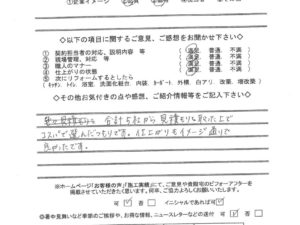 ◇以下の項目に関するご意見、ご感想をお聞かせ下さい◇
① 契約担当者の対応、説明内容 等 満足 普通 不満
② 現場管理、対応 等 満足 普通 不満
③ 職人のマナー 満足 普通 不満
④ 仕上がりの状態 満足 普通 不満
⑤ 次にリフォームするとしたら
(キッチン、トイレ、浴室、洗面化粧台、内装、カーポート、外構、白アリ、改築、増改築)
◇その他お気付きの点や感想、ご紹介情報等をご記入下さい◇
合計5社から見積もりを取った上で
コスパで選んだつもりです。仕上がりもイメージ通りで
良かったです。
※ホームページ「お客様の声」「施工実績」にて、ご意見や貴邸宅のビフォーアフターを
掲載させていただきたく思います。何卒、ご協力よろしくお願いいたします。
可 否 イニシャルであれば可
⑥暑中見舞いなど季節のご挨拶や、お得な情報、ニュースレターなどの送付 可 否